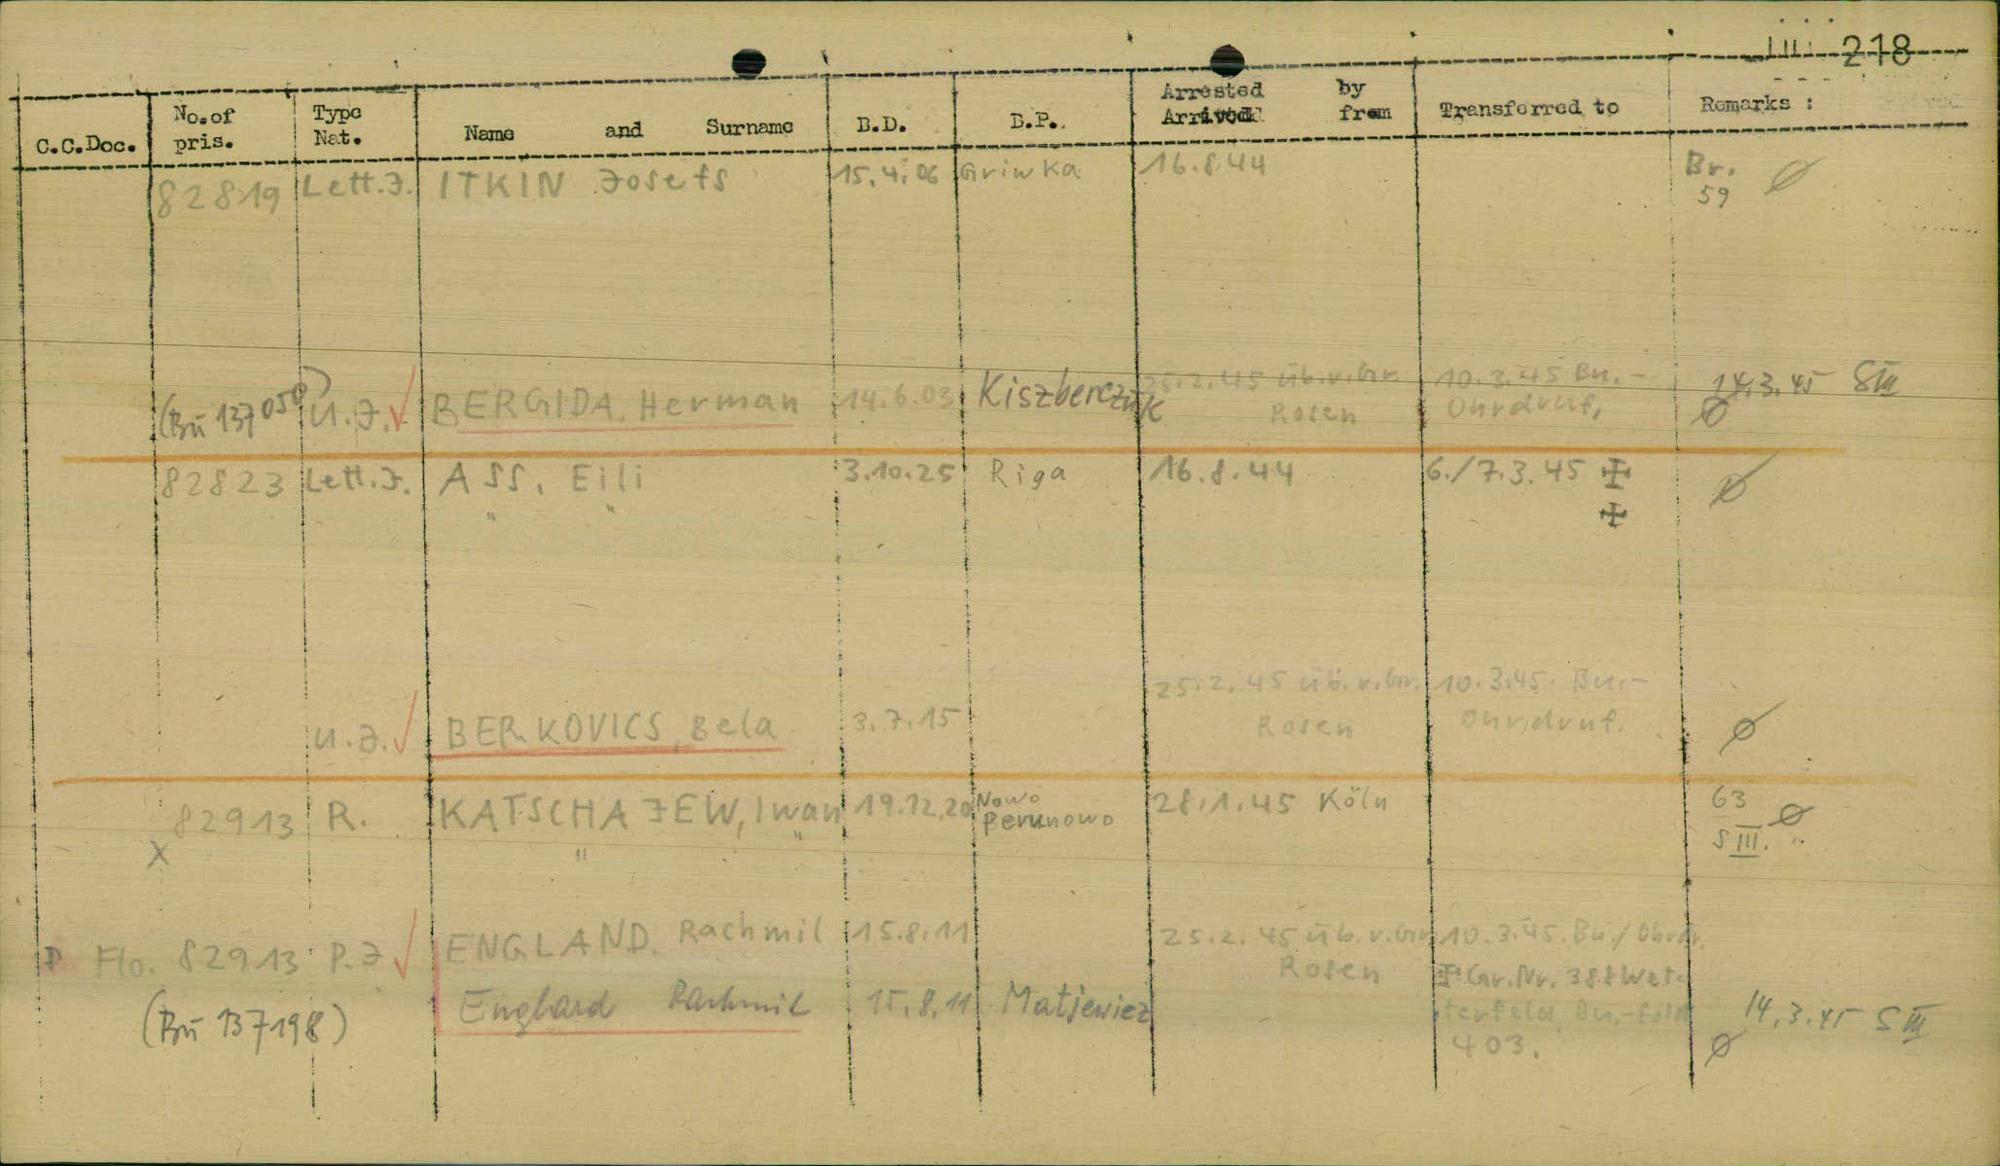 218
C.C.Doc. No.of pris. Type Nat. Name and Surname B.D. B.P. Arrested by Arrived from Transferred to Remarks :
82819 Lett.J. ITKIN Josefs 15.4.06 Griwka 16.8.44 Br.
59 Ø
25.2.45 üb.v.Gr. 10.3.45 Bu.- 14.3.45 S III
(Bu 137050) U.J. BERGIDA, Herman 14.6.03 Kiszberczuk Rosen Ohrdruf, Ø
82823 Lett.J. ASS, Eili 3.10.25 Riga 16.8.44 6./7.3.45 ✠ Ø
" " ✠
25.2.45 üb.v.Gr. 10.3.45 Bu.-
U.J. BERKOVICS, Bela 3.7.15 Rosen Ohrdruf. Ø
82913 R. KATSCHAJEW, Iwan 19.12.20 Nowo Perunowo 28.1.45 Köln 63 Ø
X " " S III.
Flo. 82913 P.J ENGLAND, Rachmil 15.8.11 25.2.45 üb.v.Gr. 10.3.45.Bu./Ohrdr.
Rosen ✠ Gr.Nr. 388 Wet-
(Bu 137198) Englard Rachmil 15.8.11 Matjewiez terfeld, Bu.- 14.3.45 S III
403. Ø